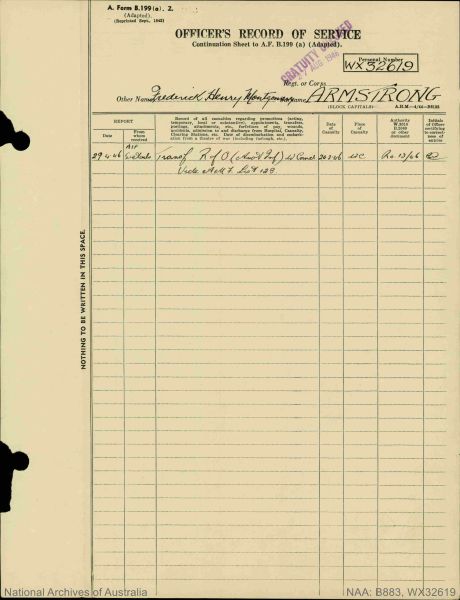 A. Form B.199 (a). 2.
(Adapted).
(Reprinted Sept., 1942)
OFFICER'S RECORD OF SERVICE
Continuation Sheet to A.F. B.199 (a) (Adapted).
GRATUITY
AUG 1946
Personal Number
WX32619
Regt. or Corps
Other Names Frederick Henry Montgomery Surname ARMSTRONG
(BLOCK CAPITALS)
REPORT
Date
From whom received
Record of all casualties regarding promotions (acting, temporary, local or substantive), appointments, transfers, postings, attachments, etc., forfeiture of pay, wounds, accidents, admission to and discharge from Hospital, Casualty, Clearing Stations, etc. Date of disembarkation and embarkation from a theatre of war (including furlough, etc.).
Date of Casualty
Place of Casualty
Authority W.3010 B.2069 or other document
Initials of Officer certifying to correctness of entries
29 4 46 AIF Transf R of O W Comd 20 3 46 WC Ro 13/46
Vide List 128
NOTHING TO BE WRITTEN IN THIS SPACE.
National Archives of Australia
NAA: B883, WX32619